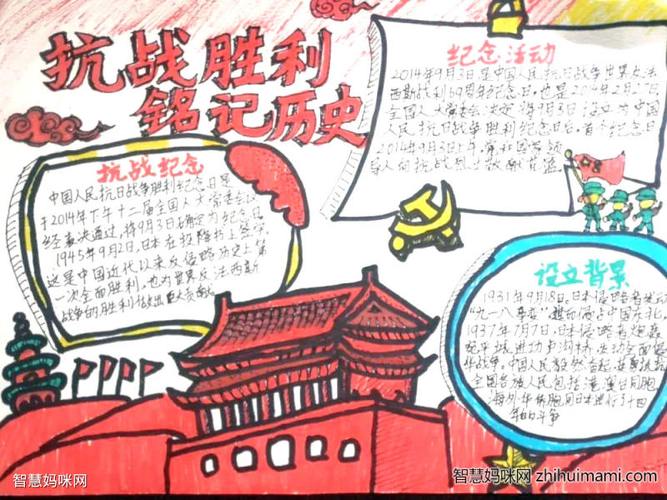 抗战胜利
铭记历史
纪念活动
2014年9月3日是中国人民抗日战争暨世界反法
西斯战利69周年纪念日,也是2014年2月27日
全国人大常委会决定将9月3日设立为中国
人民抗日战争胜利纪念日后,首个纪念日
2014年9月3日上午,党和国家领
导人向抗战烈士敬献花篮
抗战纪念
中国人民抗日战争胜利纪念日是
于2014年下午十二届全国人大常委会
经表决通过,将9月3日确定为纪念日
1945年9月2日,日本在投降书上签字
这是中国近代以来反侵略历史上第
一次全面胜利,也为世界反法西斯
战争的胜利做出巨大贡献
设立背景
1931年9月18日,日本侵略者发动
“九一八事变”,侵占中国东北。
1937年7月7日,日本侵略者炮轰
宛平城进攻卢沟桥,发动全面侵
华战争。中国人民毅然奋起
全国各族人民包括港澳台同胞
海外华侨同胞同日本进行了十四
年的斗争
智慧妈咪网
智慧妈咪网 zhihuimami.com